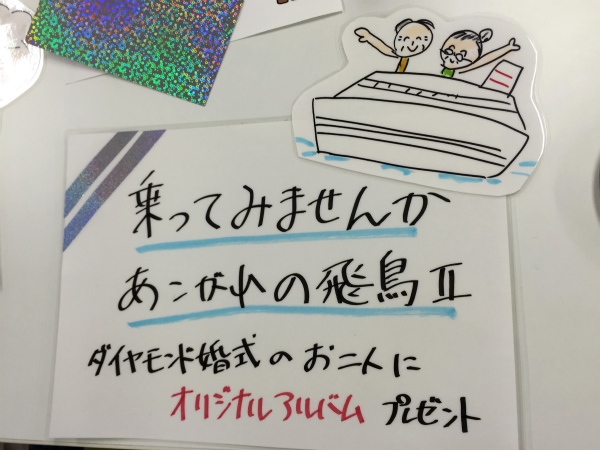 乗ってみませんか
あこがれの飛鳥Ⅱ
ダイヤモンド婚式のお二人に
オリジナルアルバム プレゼント